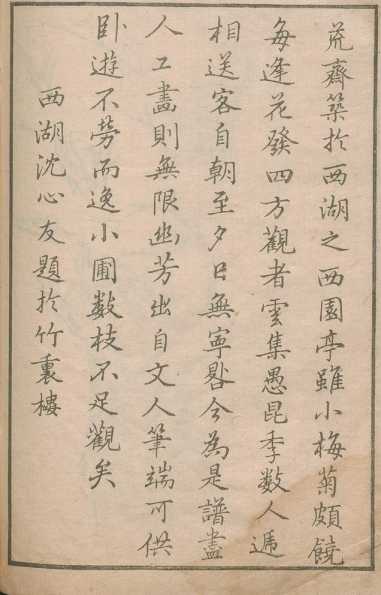 荒齋築於西湖之西園亭雖小梅菊頗饒
每逢花發四方觀者雲集愚昆季数人遞
相送客自朝至夕日無寧晷今為是譜盡
人工畵則無限幽芳出自文人筆端可供
卧遊不勞而逸小圃数枝不足觀矣
西湖沈心友題於竹裏樓